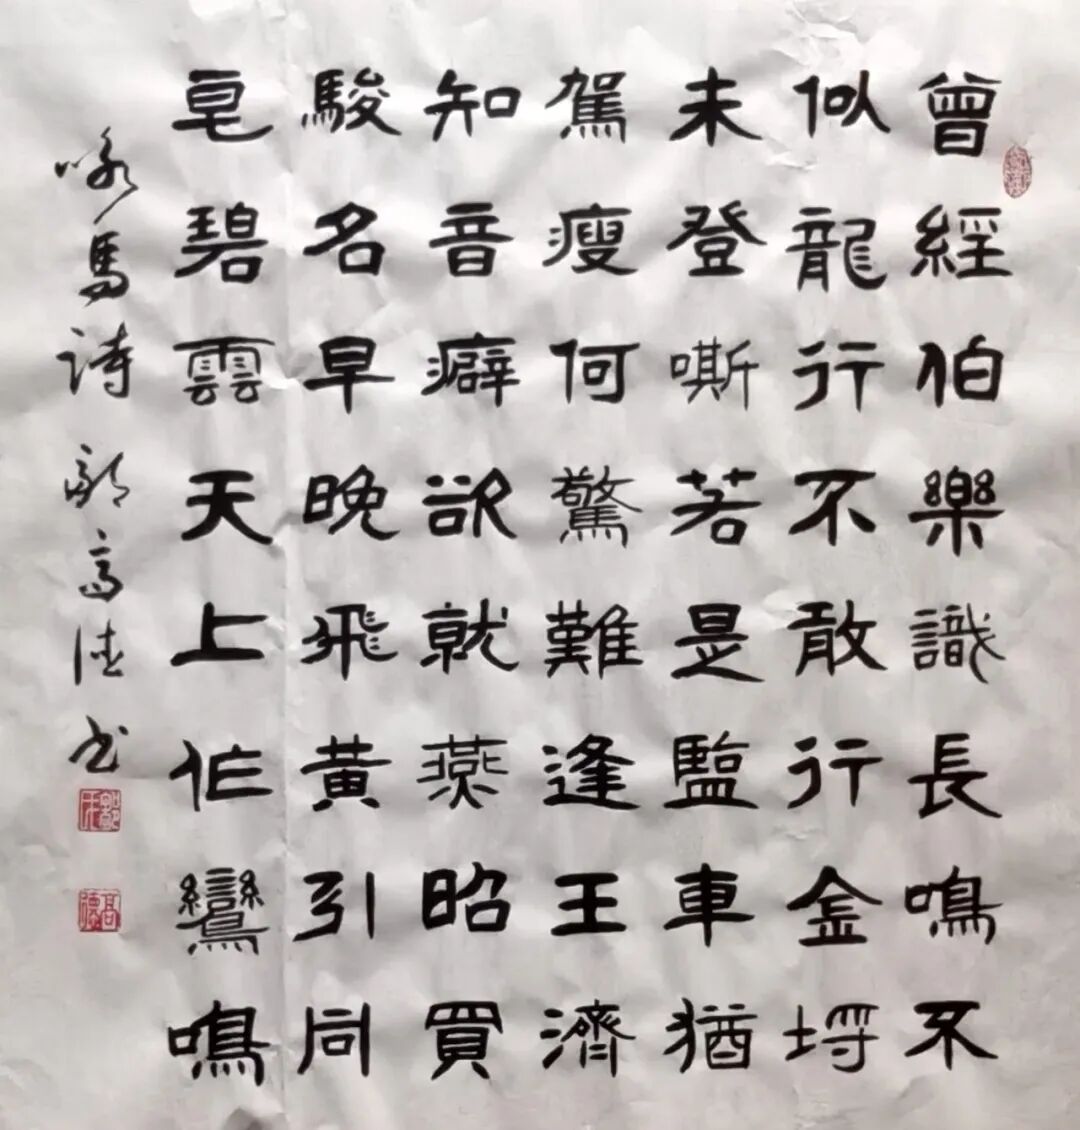 曾經伯樂識長鳴不
似龍行不敢行金埒
未登嘶若是監車猶
駕瘦何驚難逢王濟
知音癖欲就燕昭買
駿名早晚飛黃引同
皂碧雲天上作鸞鳴
咏馬詩 郭高德书